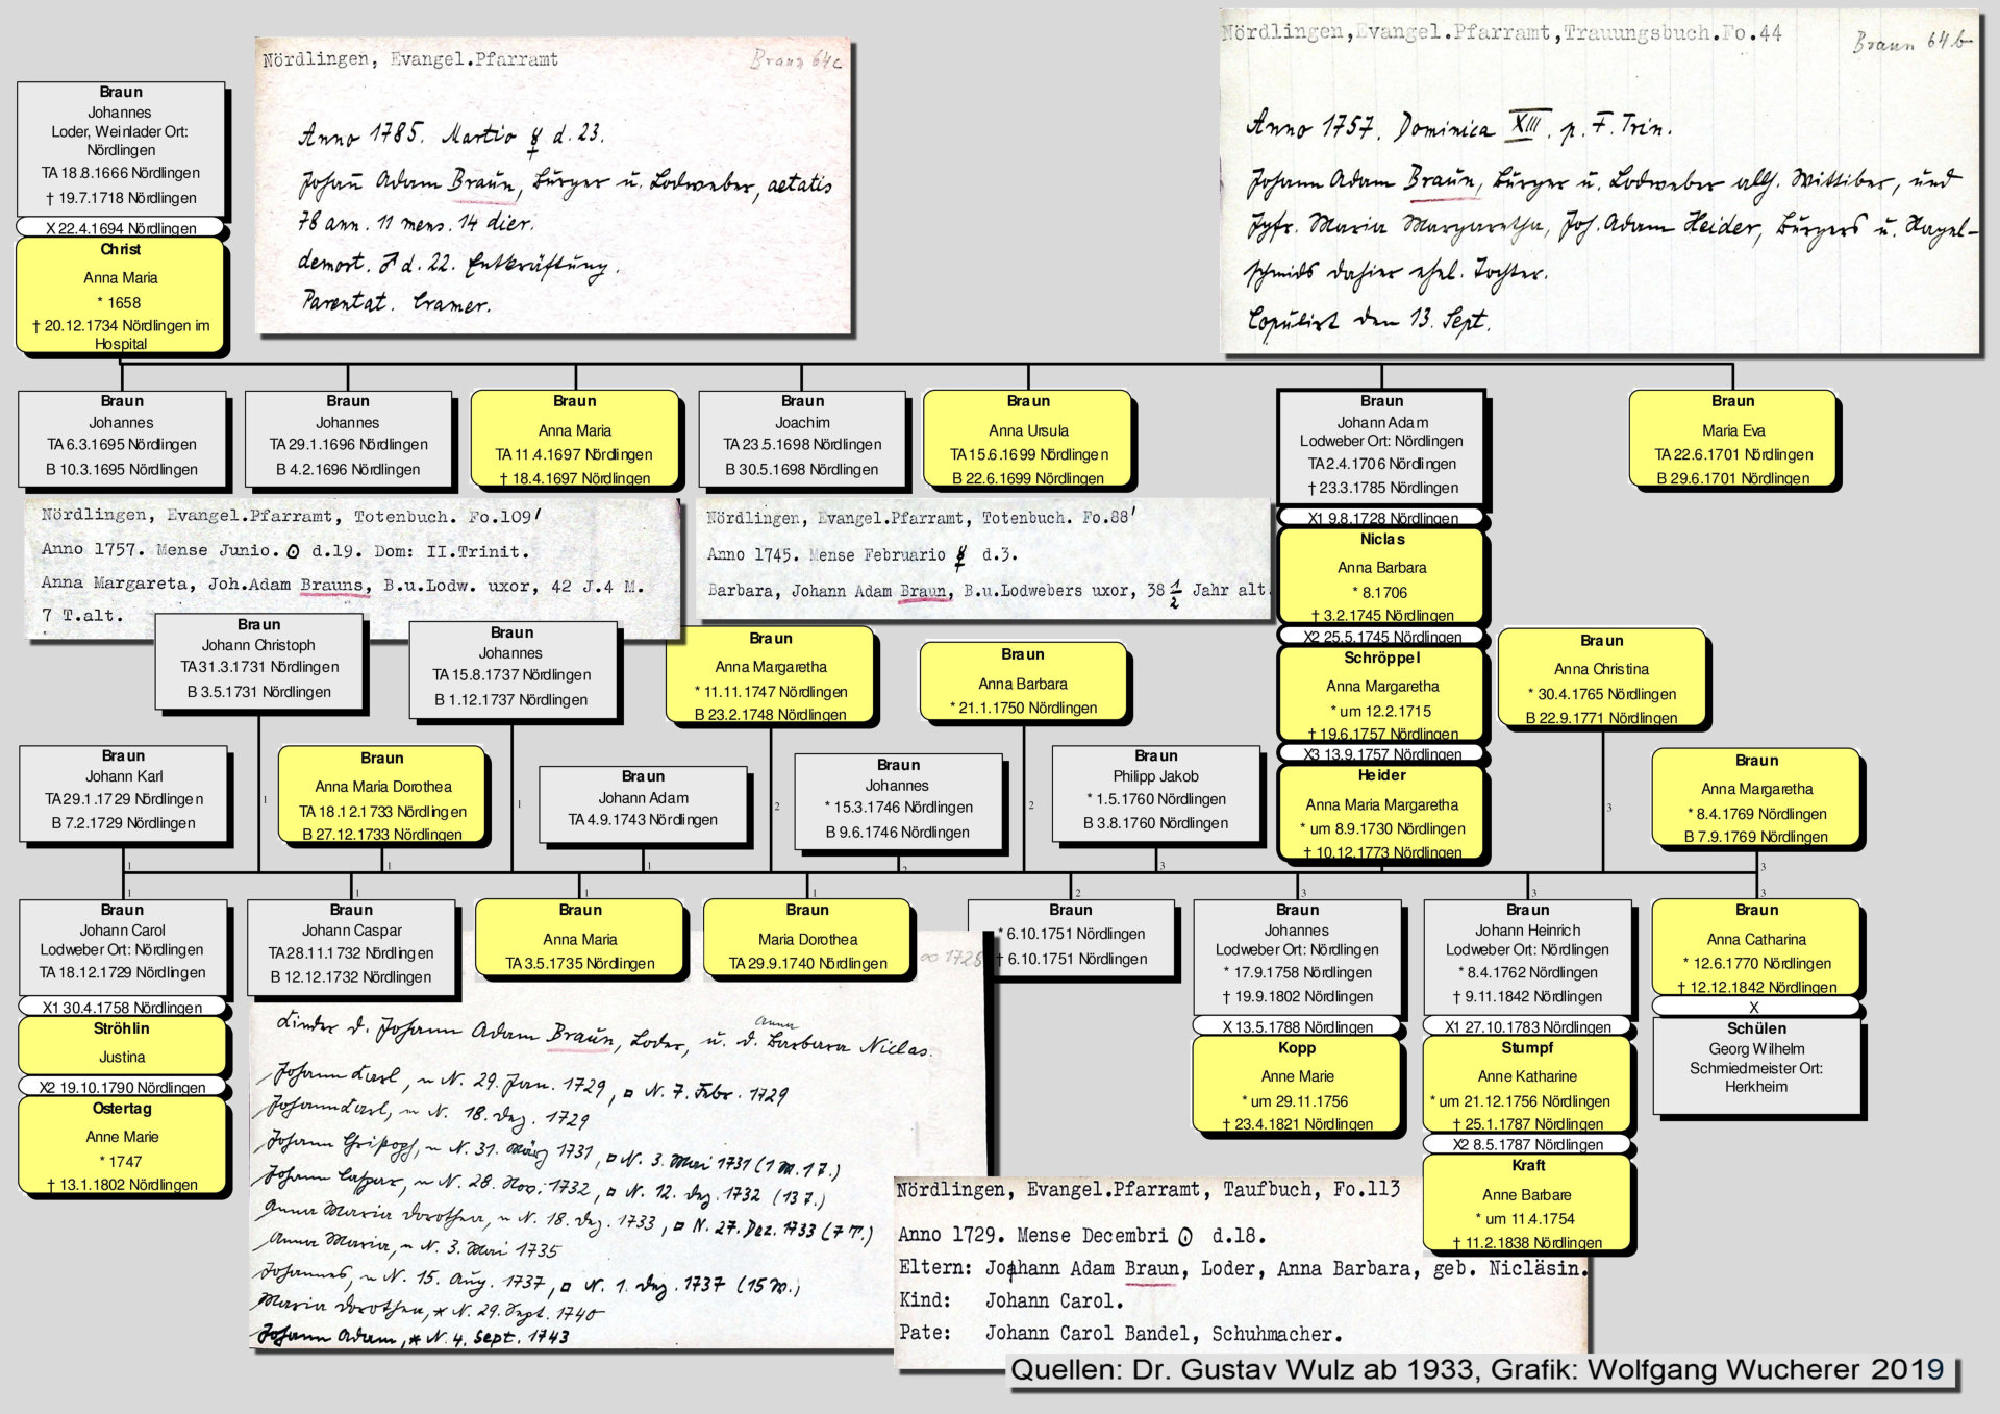 Nördlingen, Evangel.Pfarramt
Braun 64c
Anno 1785. Martio ☿ d. 23.
Johan Adam Braun, Bürger u. Lodweber, aetatis
78 ann. 11 mens. 14 dier.
demort. ♂ d. 22. Entkräftung.
Parentat. Cramer.
Nördlingen,Evangel.Pfarramt,Trauungsbuch.Fo.44
Braun 64b
Anno 1757. Dominica XIII. p. F. Trin.
Johann Adam Braun, Bürger u. Lodweber allh. Wittiber, und
Jgfr. Maria Margaretha, Joh. Adam Heider, Bürgers u. Nagel-
schmids dahier ehel. Tochter.
Copulirt den 13. Sept.
Braun
Johannes
Loder, Weinlader Ort:
Nördlingen
TA 18.8.1666 Nördlingen
† 19.7.1718 Nördlingen
X 22.4.1694 Nördlingen
Christ
Anna Maria
* 1658
† 20.12.1734 Nördlingen im
Hospital
Braun
Johannes
TA 6.3.1695 Nördlingen
B 10.3.1695 Nördlingen
Braun
Johannes
TA 29.1.1696 Nördlingen
B 4.2.1696 Nördlingen
Braun
Anna Maria
TA 11.4.1697 Nördlingen
† 18.4.1697 Nördlingen
Braun
Joachim
TA 23.5.1698 Nördlingen
B 30.5.1698 Nördlingen
Braun
Anna Ursula
TA 15.6.1699 Nördlingen
B 22.6.1699 Nördlingen
Braun
Johann Adam
Lodweber Ort: Nördlingen
TA 2.4.1706 Nördlingen
† 23.3.1785 Nördlingen
X1 9.8.1728 Nördlingen
Niclas
Anna Barbara
* 8.1706
† 3.2.1745 Nördlingen
X2 25.5.1745 Nördlingen
Schröppel
Anna Margaretha
* um 12.2.1715
† 19.6.1757 Nördlingen
X3 13.9.1757 Nördlingen
Heider
Anna Maria Margaretha
* um 8.9.1730 Nördlingen
† 10.12.1773 Nördlingen
Braun
Maria Eva
TA 22.6.1701 Nördlingen
B 29.6.1701 Nördlingen
Nördlingen, Evangel.Pfarramt, Totenbuch. Fo.109'
Anno 1757. Mense Junio. ☉ d.19. Dom: II.Trinit.
Anna Margareta, Joh.Adam Brauns, B.u.Lodw. uxor, 42 J.4 M.
7 T.alt.
Nördlingen, Evangel.Pfarramt, Totenbuch. Fo.88'
Anno 1745. Mense Februario ☿ d.3.
Barbara, Johann Adam Braun, B.u.Lodwebers uxor, 38 1/2 Jahr alt.
Braun
Johann Christoph
TA 31.3.1731 Nördlingen
B 3.5.1731 Nördlingen
Braun
Johannes
TA 15.8.1737 Nördlingen
B 1.12.1737 Nördlingen
Braun
Anna Margaretha
* 11.11.1747 Nördlingen
B 23.2.1748 Nördlingen
Braun
Anna Barbara
* 21.1.1750 Nördlingen
Braun
Anna Christina
* 30.4.1765 Nördlingen
B 22.9.1771 Nördlingen
Braun
Johann Karl
TA 29.1.1729 Nördlingen
B 7.2.1729 Nördlingen
Braun
Anna Maria Dorothea
TA 18.12.1733 Nördlingen
B 27.12.1733 Nördlingen
Braun
Johann Adam
TA 4.9.1743 Nördlingen
Braun
Johannes
* 15.3.1746 Nördlingen
B 9.6.1746 Nördlingen
Braun
Philipp Jakob
* 1.5.1760 Nördlingen
B 3.8.1760 Nördlingen
Braun
Anna Margaretha
* 8.4.1769 Nördlingen
B 7.9.1769 Nördlingen
1 1 2 2 3
1 1 1 2 3 3
1 1 1 1 2 3 3 3
Braun
Johann Carol
Lodweber Ort: Nördlingen
TA 18.12.1729 Nördlingen
X1 30.4.1758 Nördlingen
Ströhlin
Justina
X2 19.10.1790 Nördlingen
Ostertag
Anne Marie
* 1747
† 13.1.1802 Nördlingen
Braun
Johann Caspar
TA 28.11.1732 Nördlingen
B 12.12.1732 Nördlingen
Braun
Anna Maria
TA 3.5.1735 Nördlingen
Braun
Maria Dorothea
TA 29.9.1740 Nördlingen
Braun
* 6.10.1751 Nördlingen
† 6.10.1751 Nördlingen
Braun
Johannes
Lodweber Ort: Nördlingen
* 17.9.1758 Nördlingen
† 19.9.1802 Nördlingen
X 13.5.1788 Nördlingen
Kopp
Anne Marie
* um 29.11.1756
† 23.4.1821 Nördlingen
Braun
Johann Heinrich
Lodweber Ort: Nördlingen
* 8.4.1762 Nördlingen
† 9.11.1842 Nördlingen
X1 27.10.1783 Nördlingen
Stumpf
Anne Katharine
* um 21.12.1756 Nördlingen
† 25.1.1787 Nördlingen
X2 8.5.1787 Nördlingen
Kraft
Anne Barbare
* um 11.4.1754
† 11.2.1838 Nördlingen
Braun
Anna Catharina
* 12.6.1770 Nördlingen
† 12.12.1842 Nördlingen
X
Schülen
Georg Wilhelm
Schmiedmeister Ort:
Herkheim
∞ 1728
Kinder d. Johann Adam Braun, Loder, u. d. Anna Barbara Niclas.
Johann Karl, ~ N. 29. Jan. 1729, □ N. 7. Febr. 1729
Johann Karl, ~ N. 18. Dez. 1729
Johann Christoph, ~ N. 31. März 1731, □ N. 3. Mai 1731 (1 M. 1 T.)
Johann Caspar, ~ N. 28. Nov. 1732, □ N. 12. Dez. 1732 (13 T.)
Anna Maria Dorothea, ~ N. 18. Dez. 1733, □ N. 27. Dez. 1733 (7 T.)
Anna Maria, ~ N. 3. Mai 1735
Johannes, ~ N. 15. Aug. 1737, □ N. 1. Dez. 1737 (15 W.)
Maria Dorothea, * N. 29. Sept. 1740
Johann Adam, * N. 4. Sept. 1743
Nördlingen, Evangel.Pfarramt, Taufbuch, Fo.113
Anno 1729. Mense Decembri ☉ d.18.
Eltern: Johann Adam Braun, Loder, Anna Barbara, geb. Nicläsin.
Kind: Johann Carol.
Pate: Johann Carol Bandel, Schuhmacher.
Quellen: Dr. Gustav Wulz ab 1933, Grafik: Wolfgang Wucherer 2019